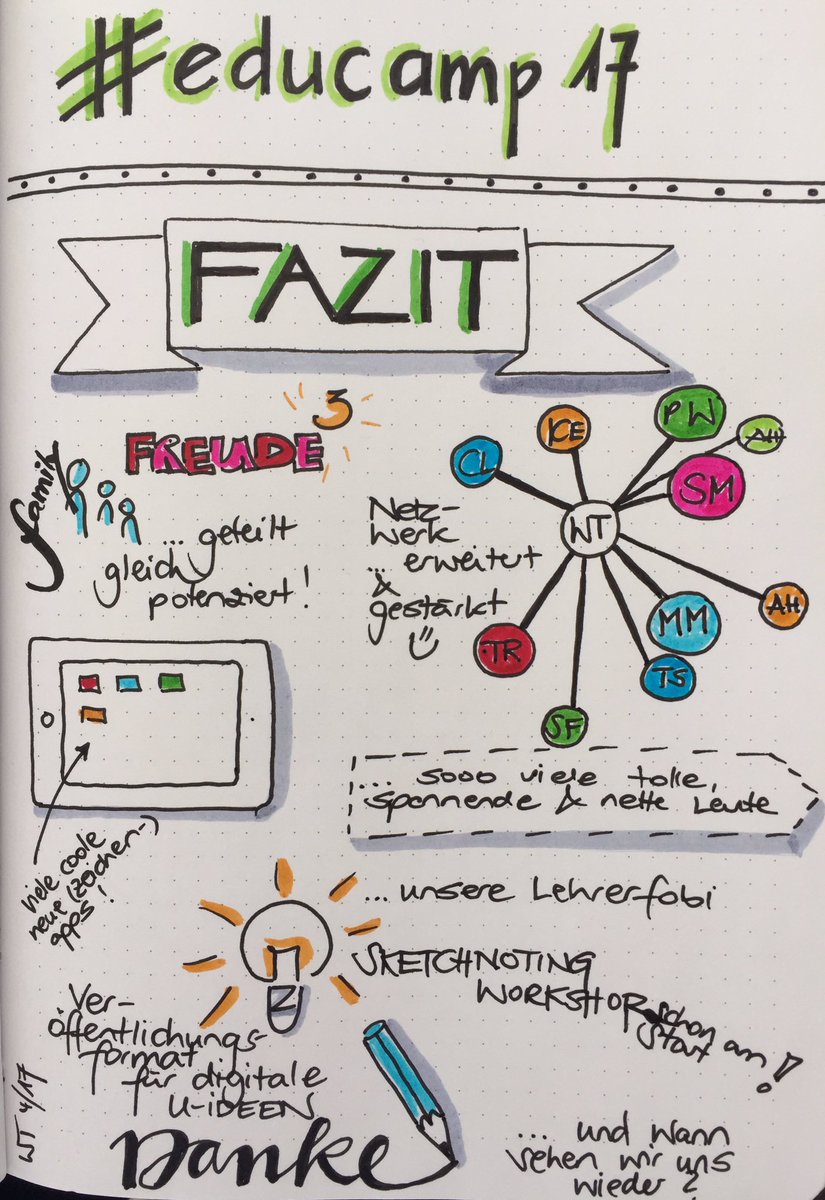 #educamp 17
FAZIT
FREUDE 3
family
... geteilt
gleich
potenziert!
Netz-
werk
... erweitert
&
gestärkt
WT
CL
KE
PW
AH
SM
AH
MM
TS
SF
TR
... sooo viele tolle,
spannende & nette Leute
Viele coole
neue (Zeichen-)
apps!
... unsere Lehrerfobi
SKETCHNOTING
WORKSHOP schon
start an!
Ver-
öffentlichungs-
format
für digitale
U-IDEEN
WT 4/17
Danke
... und wann
sehen wir uns
wieder?